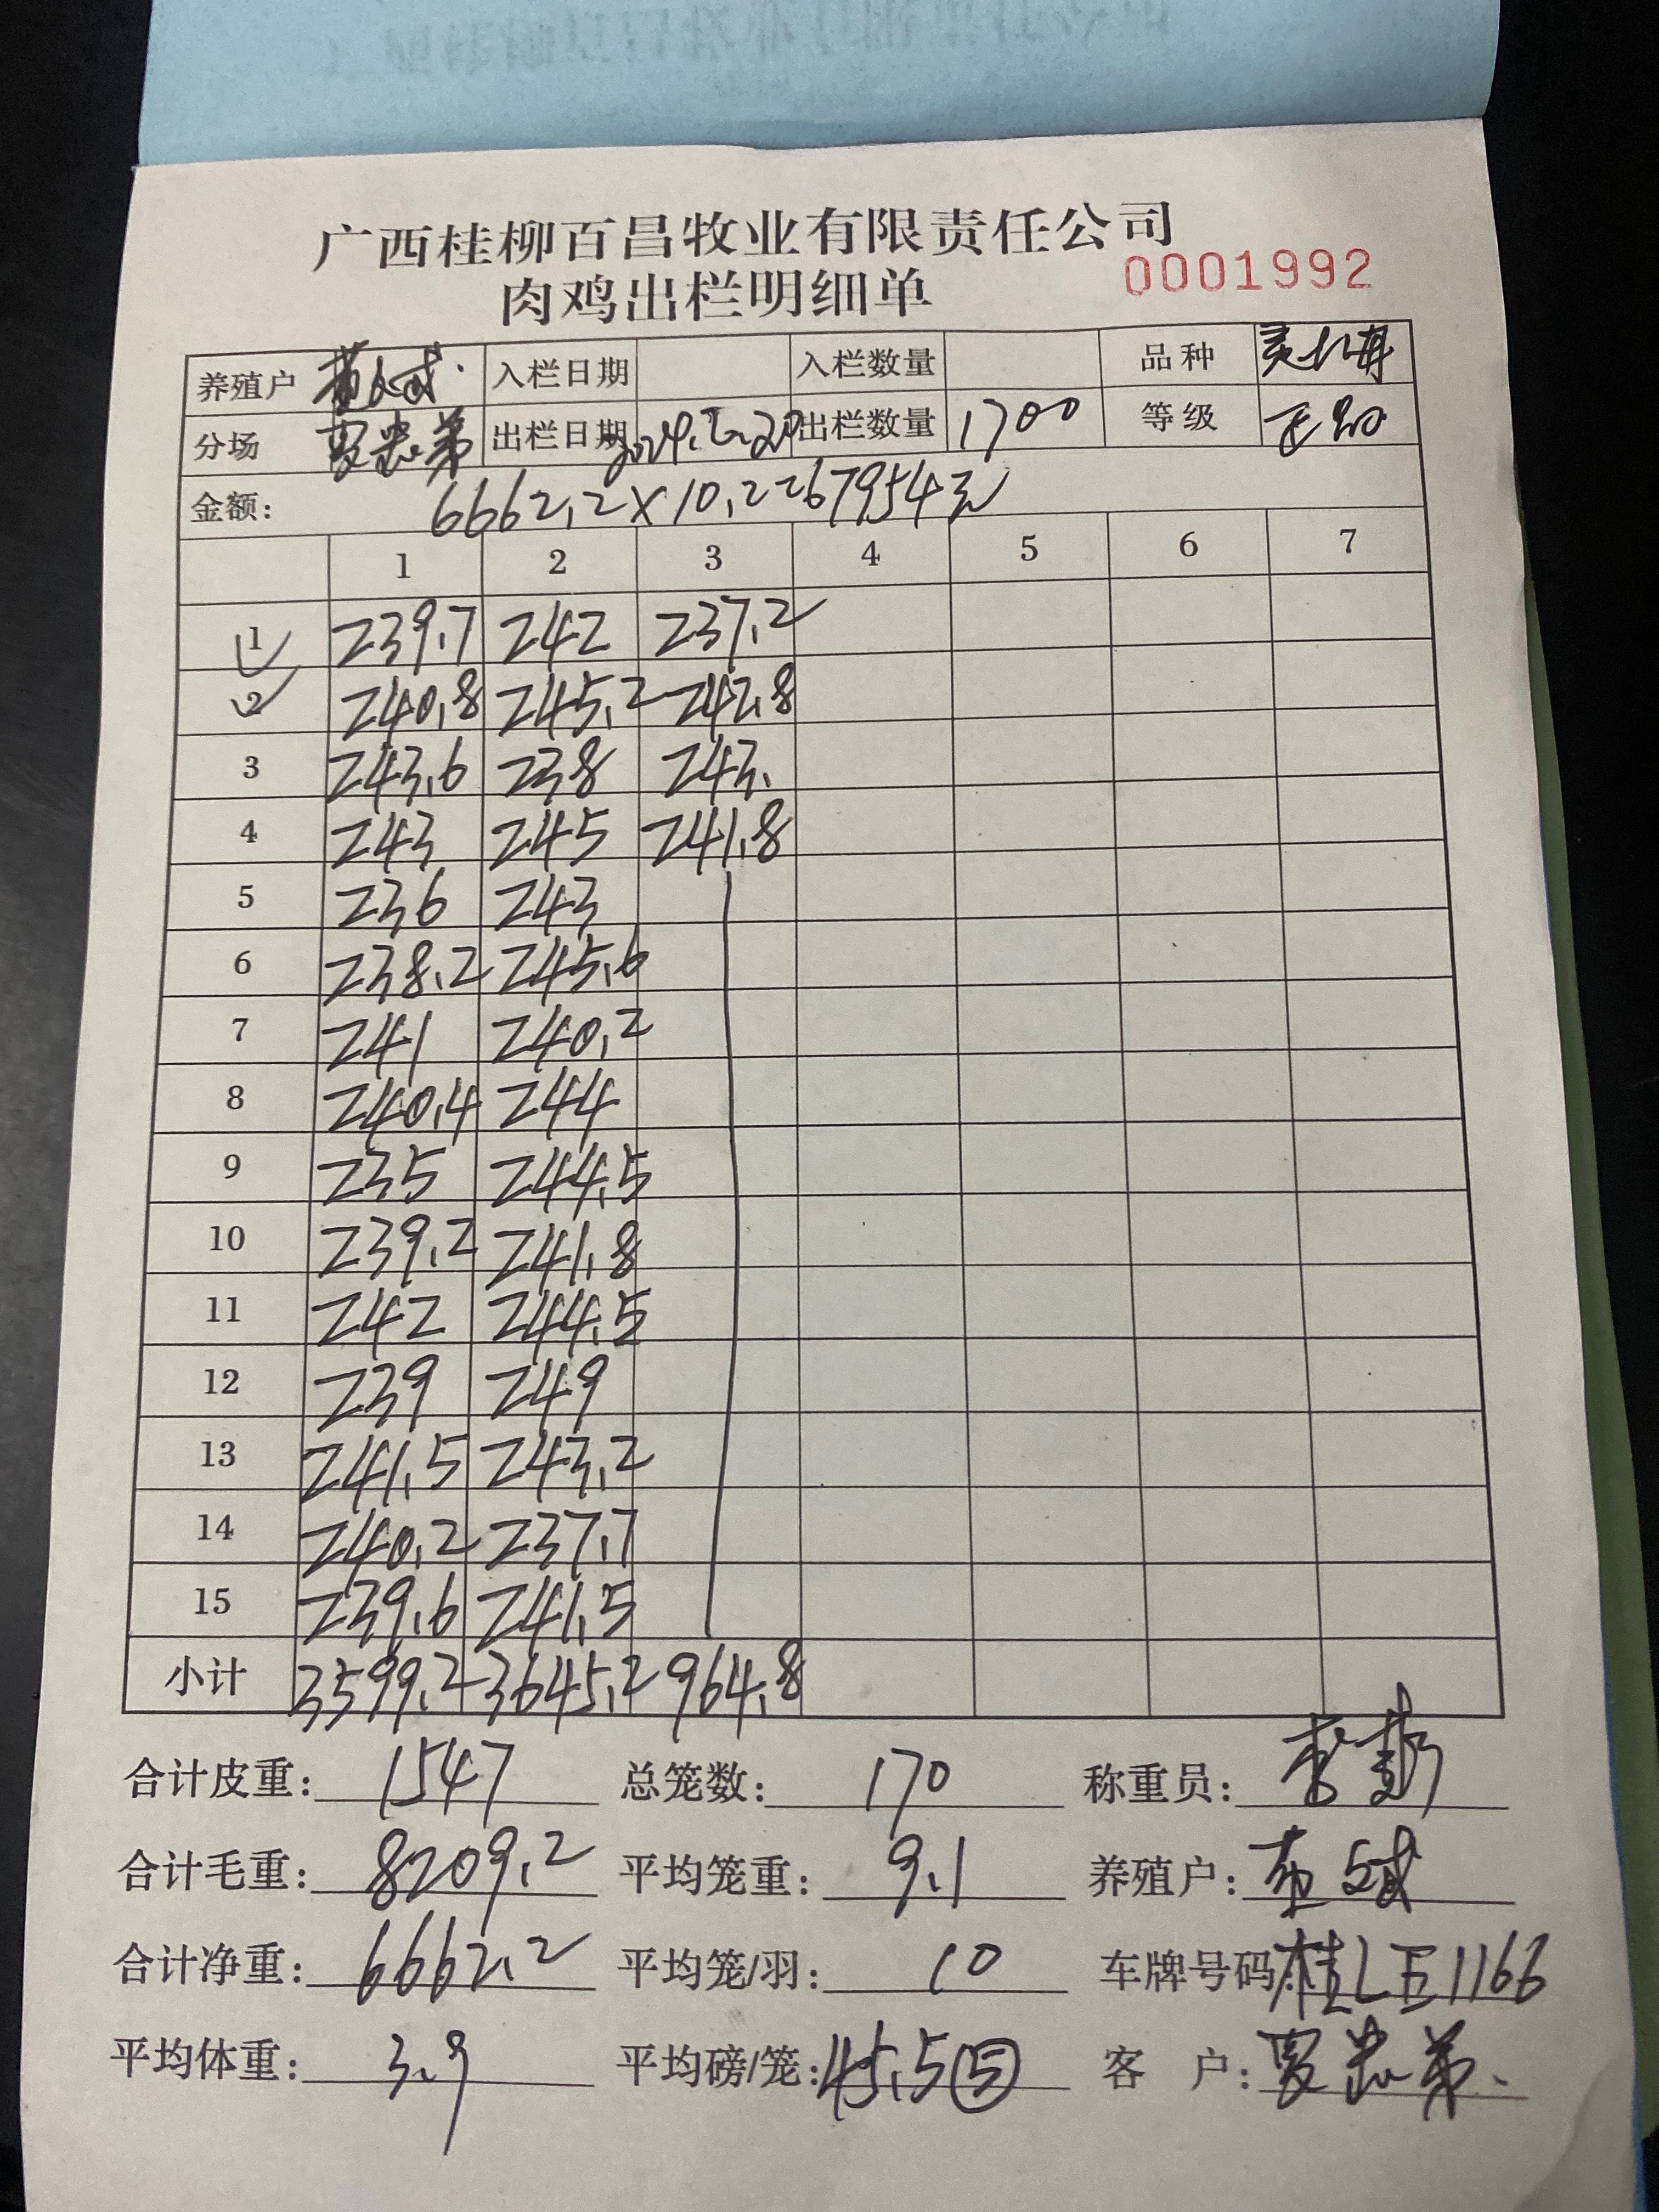 广西桂柳百昌牧业有限责任公司
肉鸡出栏明细单 0001992
养殖户 入栏日期 入栏数量 品种
分场 罗忠弟 出栏日期 出栏数量 1700 等级
金额: 6662.2×10.2=67954元
1 2 3 4 5 6 7
1 239.7 242 237.2
2 240.8 245.2 242.8
3 243.6 238 243.
4 243 245 241.8
5 236 243
6 238.2 245.6
7 241 240.2
8 240.4 244
9 235 244.5
10 239.2 241.8
11 242 244.5
12 239 249
13 241.5 243.2
14 240.2 237.7
15 239.6 241.5
小计 3599.2 3645.2 964.8
合计皮重: 1547 总笼数: 170 称重员:
合计毛重: 8209.2 平均笼重: 9.1 养殖户:
合计净重: 6662.2 平均笼/羽: 10 车牌号码: 桂LE1166
平均体重: 3.9 平均磅/笼: 45.5 ⑤ 客户: 罗忠弟